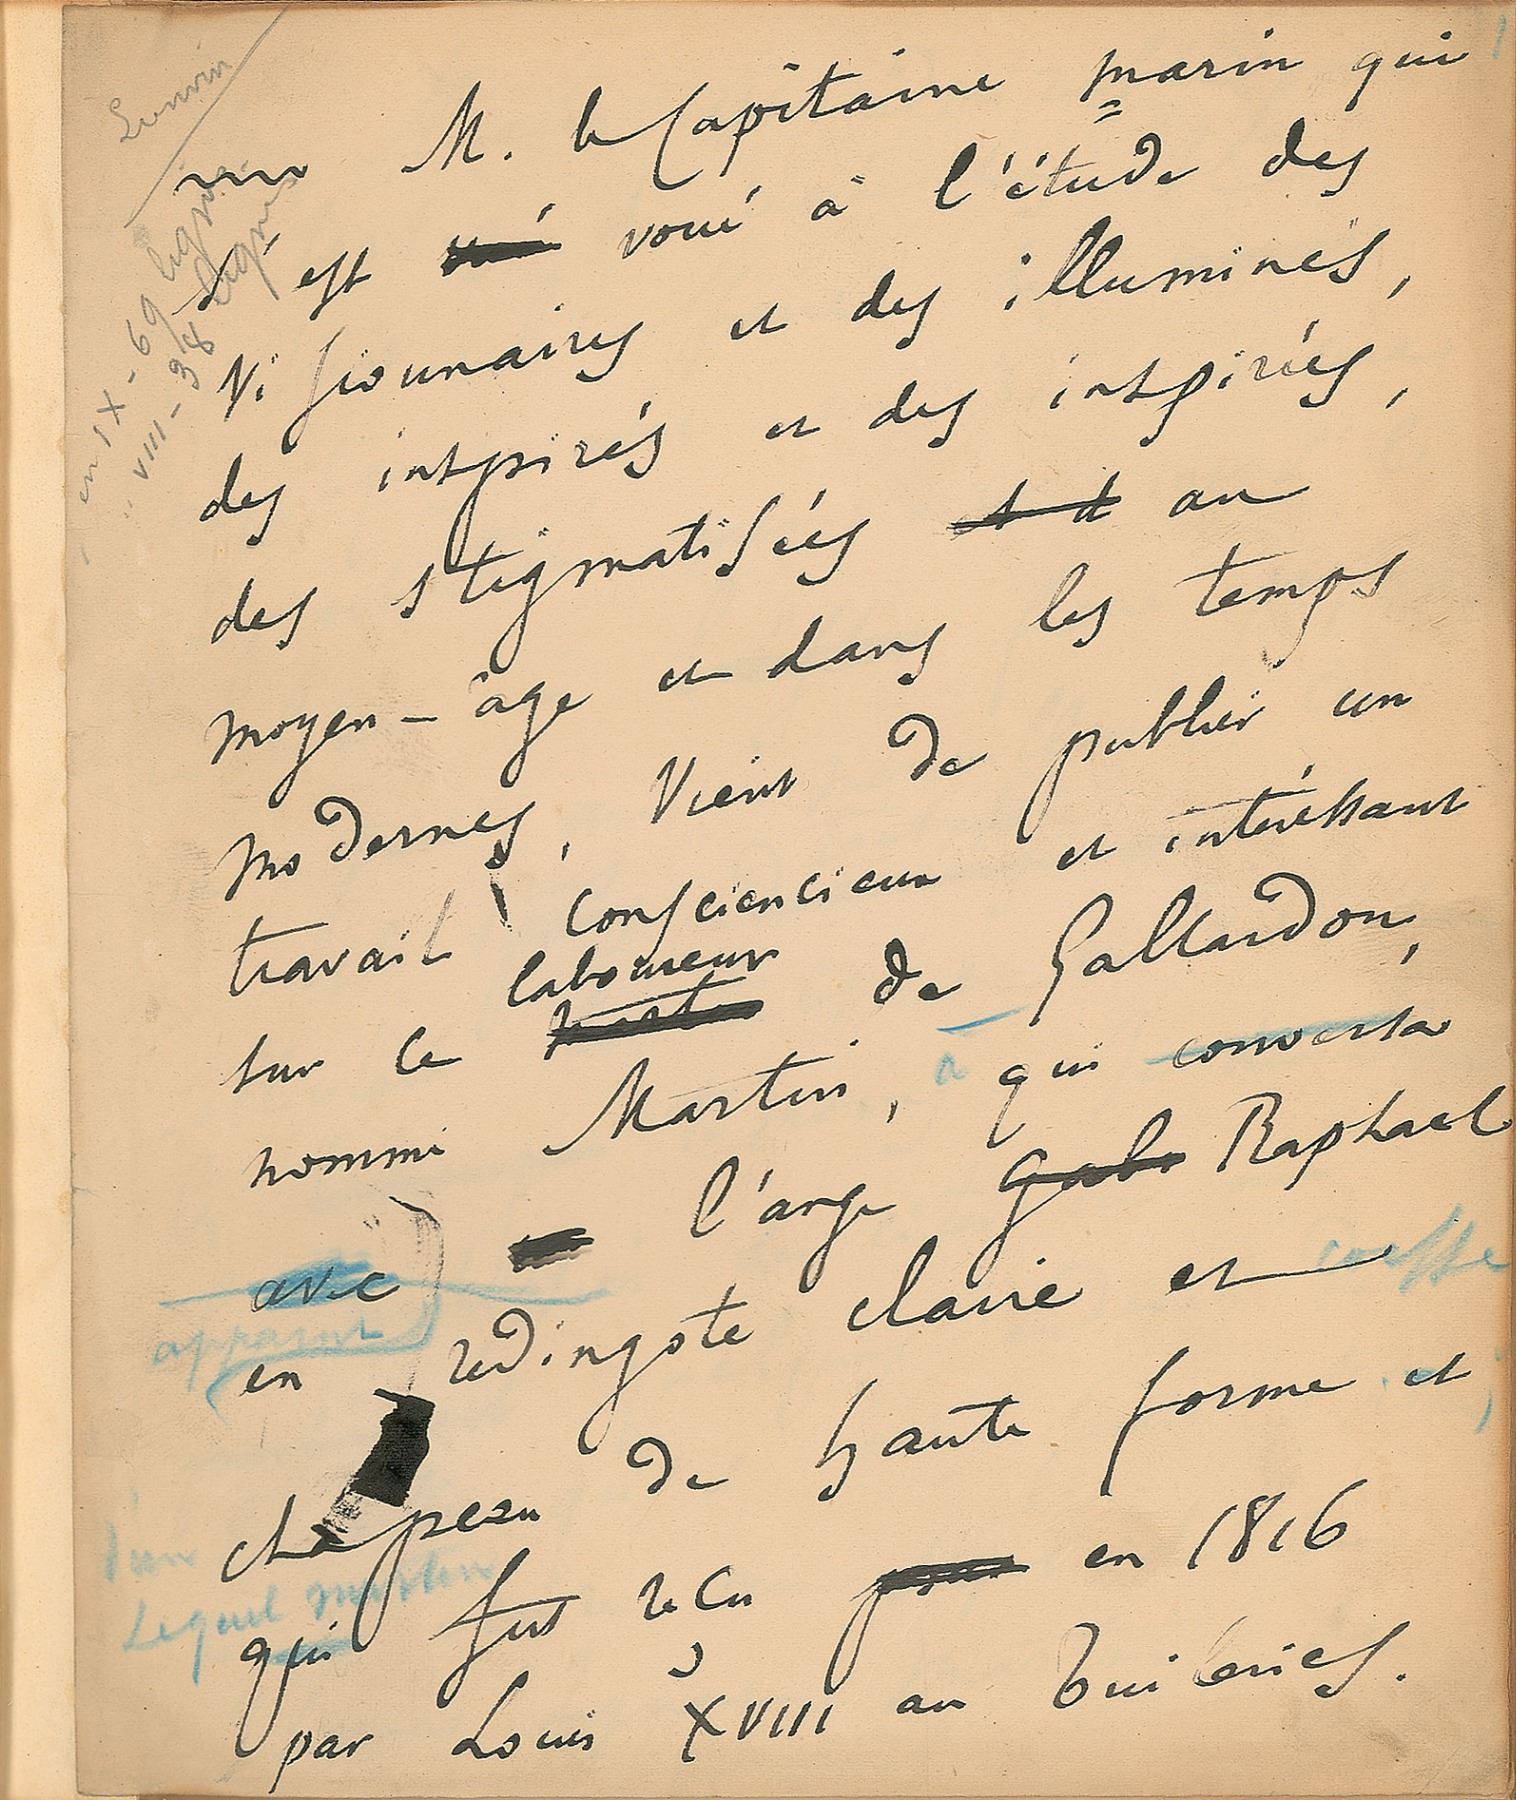 M. le Capitaine marin qui
s'est voué à l'étude des
Visionnaires et des illuminés,
des inspirés et des inspirées,
des stigmatisées au
moyen-âge et dans les temps
modernes, vient de publier un
travail consciencieux et intéressant
laboureur
sur le de Gallardon,
nommé Martin, à qui conversa
avec l'ange Gabr Raphael
apparut
en redingote claire et coiffé
chapeau de haute forme et
lequel Martin
qui fut reçu en 1816
par Louis XVIII au Tuileries.
en IX - 69 lignes
VIII - 38 lignes